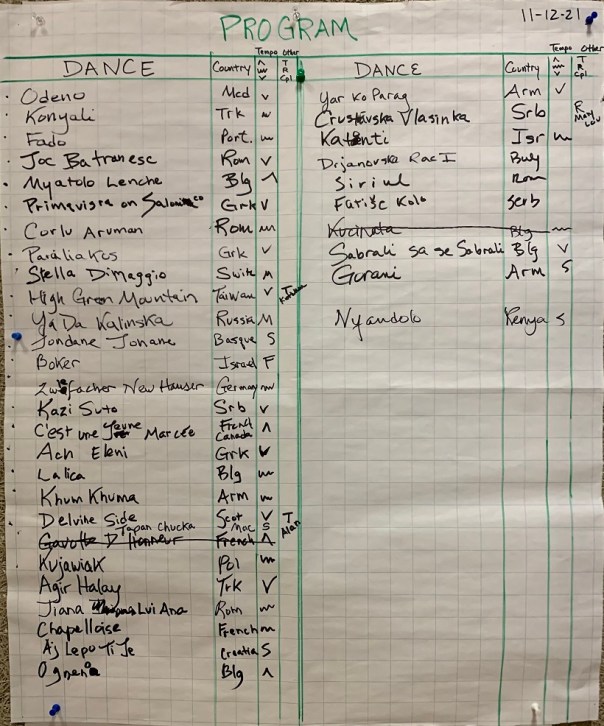 11-12-21
PROGRAM
DANCE Country Tempo Other T R Cpl
Odeno Mcd v
Konyali Trk
Fado Port.
Joc Batranesc Rom v
Myatolo Lenche Blg ^
Primavisra on Grk v
Corlu Aruman Rom
Paraliakos Grk v
Stella DiMaggio
High Green Mountain Taiwan v T
Ya Da Kalinska Russia M
Jondane Johane Basque S
Boker Israel F
New Hauser Germany
Kazi Suto Srb v
C'est une Jeune Marcée French Canada ^
Ach Eleni Grk v
Lalica Blg
Khum Khuma Arm
Delvine Side Scot v T Alan
Tapan Chucka Mac S
Gavotte D'Honneur French ^
Kujawiak Pol
Agir Halay Trk V
Jiana Lui Ana Rom
Chapelloise French
Aj Lepo Ti Je Croatia S
Blg ^
DANCE Country Tempo Other T R Cpl
Yar Ko Parag Arm v
Vlasinka Srb R Mary Lou
Isr
Drjanovska Rac I Bulg
Siriul Rom
Fatise Kolo Serb
Kucinata Blg
Sabrali sa se Sabrali Blg v
Gorani Arm S
Nyandolo Kenya S